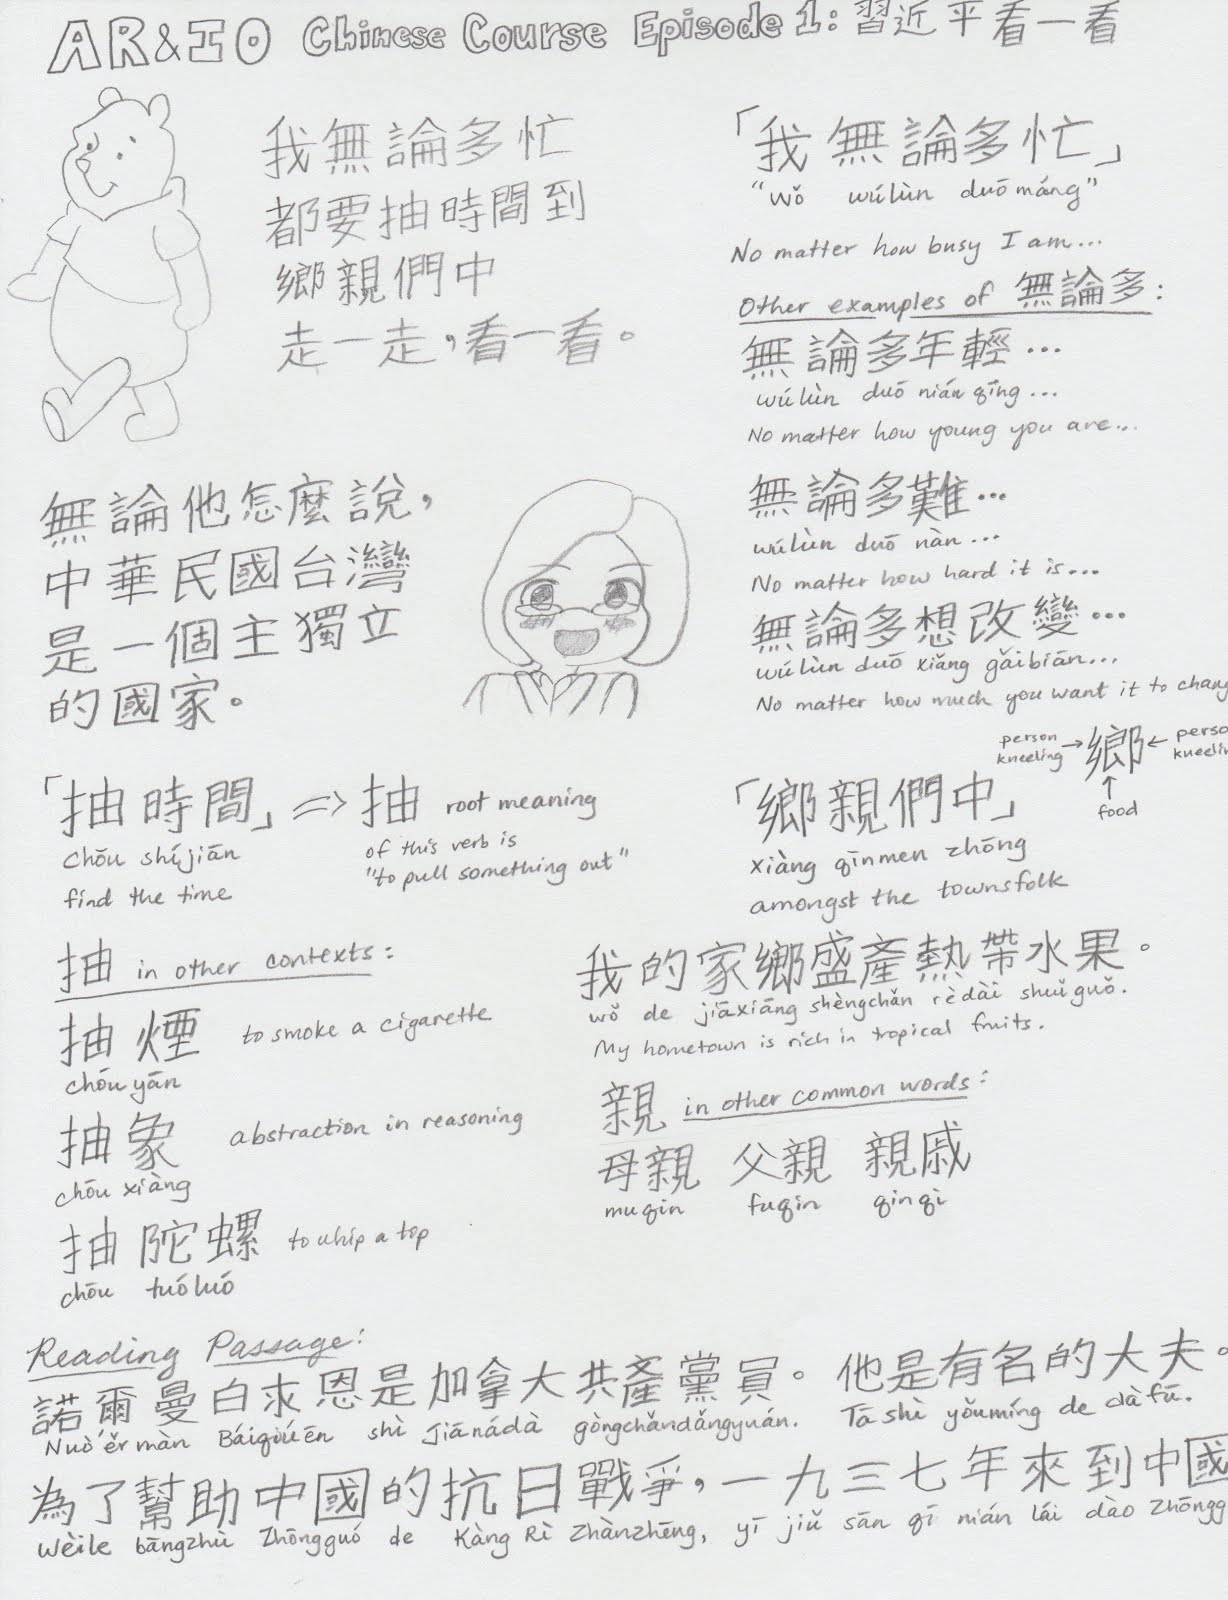 AR&IO Chinese Course Episode 1: 習近平看一看
我無論多忙
都要抽時間到
鄉親們中
走一走，看一看。
「我無論多忙」
"wǒ wúlùn duō máng"
No matter how busy I am...
Other examples of 無論多:
無論多年輕...
wúlùn duō nián qīng...
No matter how young you are...
無論多難...
wúlùn duō nàn...
No matter how hard it is...
無論多想改變...
wúlùn duō xiǎng gǎibiān...
No matter how much you want it to chang
無論他怎麼說，
中華民國台灣
是一個主獨立
的國家。
「抽時間」=> 抽 root meaning
of this verb is
"to pull something out"
chōu shíjiān
find the time
person kneeling → 鄉 ← perso kneelin
↑
food
「鄉親們中」
xiàng qīnmen zhōng
amongst the townsfolk
抽 in other contexts:
抽煙 to smoke a cigarette
chōu yān
抽象 abstraction in reasoning
chōu xiàng
抽陀螺 to whip a top
chōu tuóluó
我的家鄉盛產熱帶水果。
wǒ de jiāxiāng shèngchǎn rèdài shuǐguǒ.
My hometown is rich in tropical fruits.
親 in other common words:
母親 父親 親戚
muqin fuqin qinqì
Reading Passage:
諾爾曼白求恩是加拿大共產黨員。他是有名的大夫。
Nuò'ěrmàn Báiqiúēn shì Jiānádà gòngchǎndǎngyuán. Tā shì yǒumíng de dàfū.
為了幫助中國的抗日戰爭，一九三七年來到中國
Wèile bāngzhù Zhōngguó de Kàng Rì Zhànzhēng, yī jiǔ sān qī nián lái dào Zhōngg